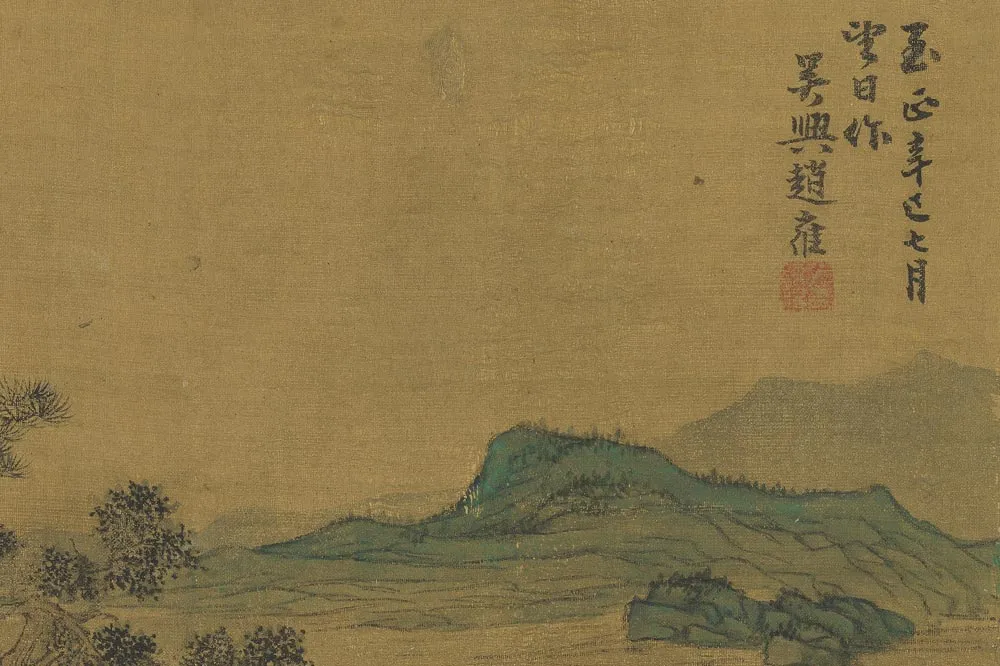 至正辛巳七月
望日作
吳興趙雍